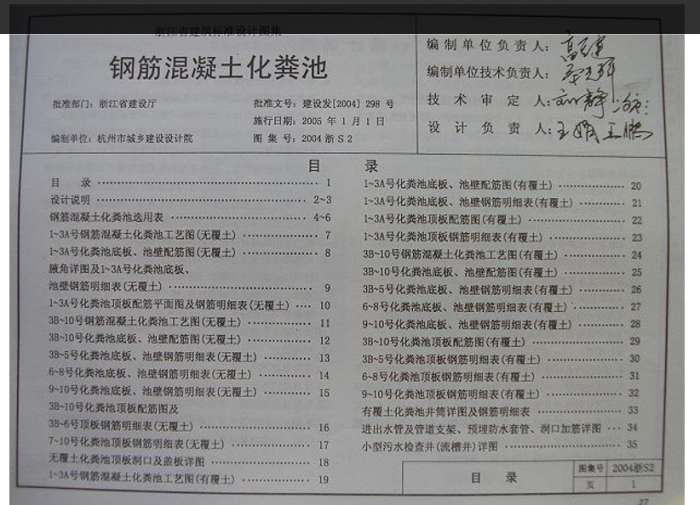 浙江省建筑标准设计图集
钢筋混凝土化粪池
批准部门：浙江省建设厅
批准文号：建设发[2004] 298 号
施行日期：2005 年 1 月 1 日
编制单位：杭州市城乡建设设计院
图 集 号：2004浙S2
编制单位负责人：
编制单位技术负责人：
技 术 审 定 人：
设 计 负 责 人：
目 录
目 录 1
设计说明 2~3
钢筋混凝土化粪池选用表 4~6
1~3A号钢筋混凝土化粪池工艺图(无覆土) 7
1~3A号化粪池底板、池壁配筋图(无覆土) 8
腋角详图及1~3A号化粪池底板、
池壁钢筋明细表(无覆土) 9
1~3A号化粪池顶板配筋平面图及钢筋明细表(无覆土) 10
3B~10号钢筋混凝土化粪池工艺图(无覆土) 11
3B~10号化粪池底板、池壁配筋图(无覆土) 12
3B~5号化粪池底板、池壁钢筋明细表(无覆土) 13
6~8号化粪池底板、池壁钢筋明细表(无覆土) 14
9~10号化粪池底板、池壁钢筋明细表(无覆土) 15
3B~10号化粪池顶板配筋图及
3B~6号顶板钢筋明细表(无覆土) 16
7~10号化粪池顶板钢筋明细表(无覆土) 17
无覆土化粪池顶板洞口及盖板详图 18
1~3A号钢筋混凝土化粪池工艺图(有覆土) 19
1~3A号化粪池底板、池壁配筋图(有覆土) 20
1~3A号化粪池底板、池壁钢筋明细表(有覆土) 21
1~3A号化粪池顶板配筋图(有覆土) 22
1~3A号化粪池顶板钢筋明细表(有覆土) 23
3B~10号钢筋混凝土化粪池工艺图(有覆土) 24
3B~10号化粪池底板、池壁配筋图(有覆土) 25
3B~5号化粪池底板、池壁钢筋明细表(有覆土) 26
6~8号化粪池底板、池壁钢筋明细表(有覆土) 27
9~10号化粪池底板、池壁钢筋明细表(有覆土) 28
3B~10号化粪池顶板配筋图(有覆土) 29
3B~5号化粪池顶板钢筋明细表(有覆土) 30
6~8号化粪池顶板钢筋明细表(有覆土) 31
9~10号化粪池顶板钢筋明细表(有覆土) 32
有覆土化粪池井筒详图及钢筋明细表 33
进出水管及管道支架、预埋防水套管、洞口加筋详图 34
小型污水检查井(流槽井)详图 35
目 录
图集号 2004浙S2
页 1
27